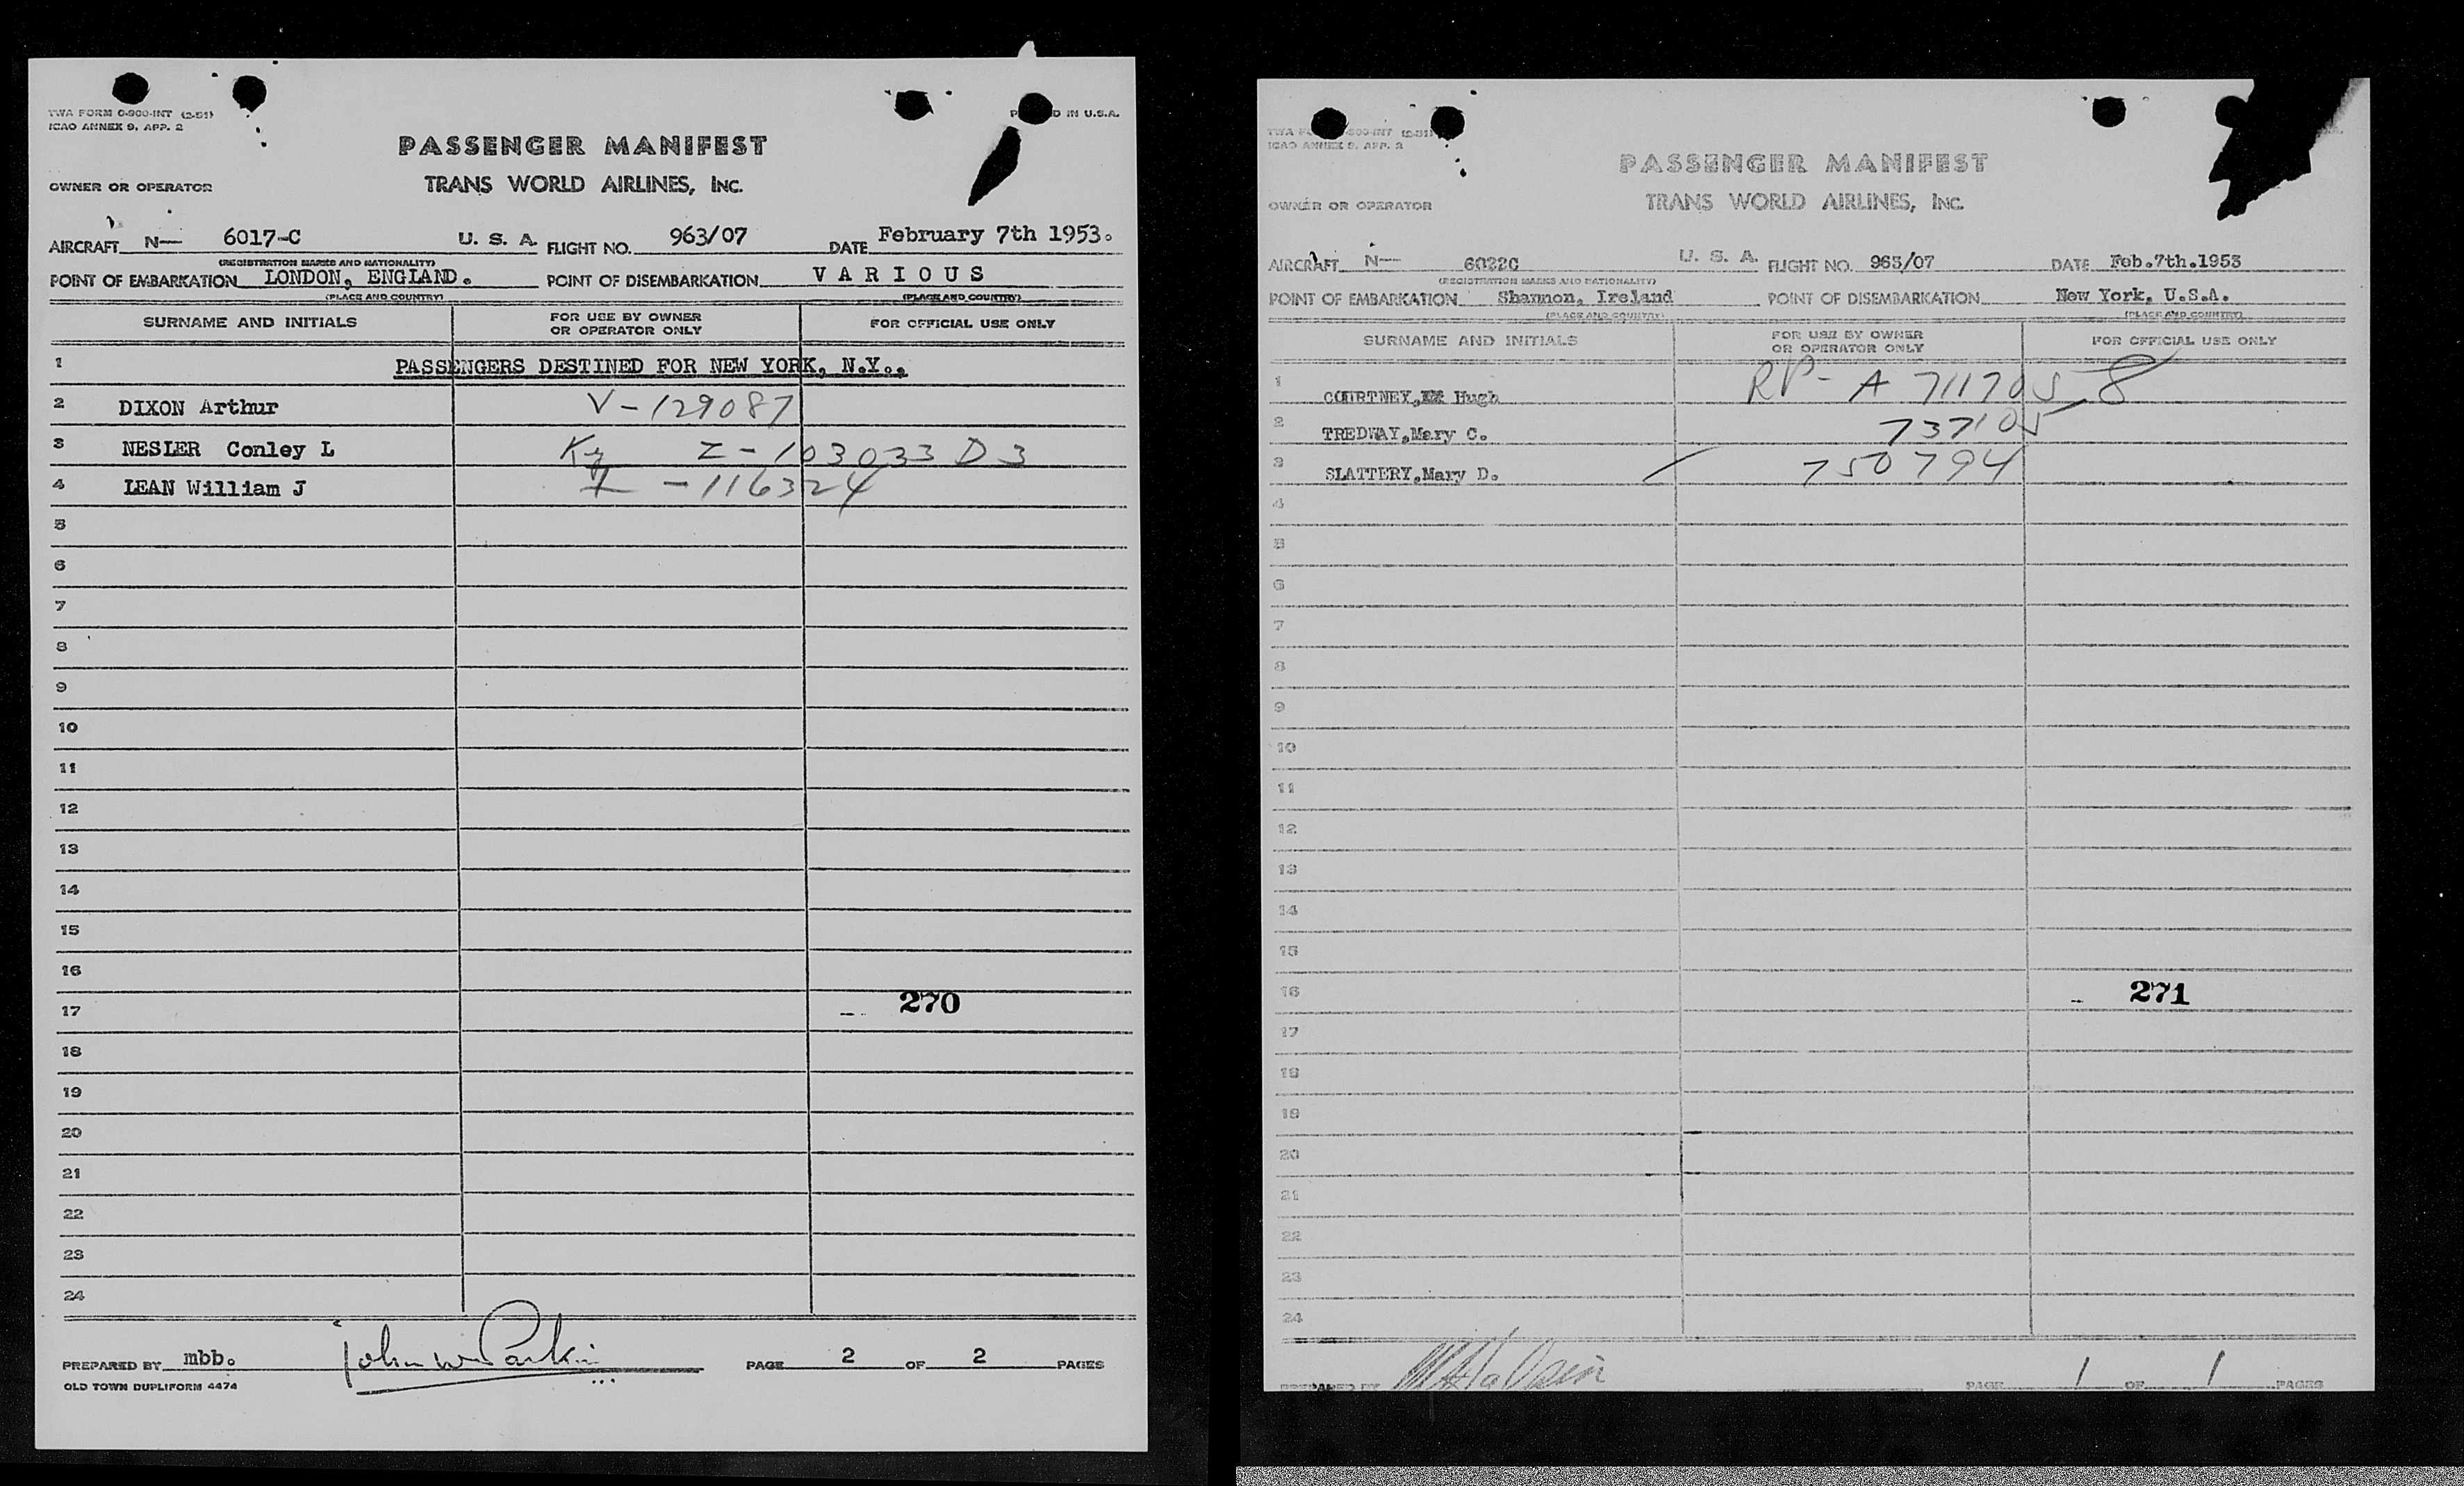 TWA FORM O-900-INT (2-51)
ICAO ANNEX 9, APP. 2
D IN U.S.A.
PASSENGER MANIFEST
OWNER OR OPERATOR
TRANS WORLD AIRLINES, INC.
AIRCRAFT N— 6017-C U. S. A. FLIGHT NO. 963/07 DATE February 7th 1953.
(REGISTRATION MARKS AND NATIONALITY)
POINT OF EMBARKATION LONDON, ENGLAND. POINT OF DISEMBARKATION V A R I O U S
(PLACE AND COUNTRY) (PLACE AND COUNTRY)
SURNAME AND INITIALS FOR USE BY OWNER OR OPERATOR ONLY FOR OFFICIAL USE ONLY
1 PASSENGERS DESTINED FOR NEW YORK, N.Y..
2 DIXON Arthur V-129087
3 NESLER Conley L Z-103033 D3
4 LEAN William J -116324
5
6
7
8
9
10
11
12
13
14
15
16
17 270
18
19
20
21
22
23
24
PREPARED BY mbb. John W Parkin PAGE 2 OF 2 PAGES
OLD TOWN DUPLIFORM 4474
TWA -900-INT (2-51)
ICAO ANNEX 9, APP. 2
PASSENGER MANIFEST
OWNER OR OPERATOR
TRANS WORLD AIRLINES, INC.
AIRCRAFT N— 6022C U. S. A. FLIGHT NO. 963/07 DATE Feb.7th.1953
(REGISTRATION MARKS AND NATIONALITY)
POINT OF EMBARKATION Shannon, Ireland POINT OF DISEMBARKATION New York, U.S.A.
(PLACE AND COUNTRY) (PLACE AND COUNTRY)
SURNAME AND INITIALS FOR USE BY OWNER OR OPERATOR ONLY FOR OFFICIAL USE ONLY
1 COURTNEY, Hugh RP- A 711705 8
2 TREDWAY,Mary C. 737105
3 SLATTERY,Mary D. 750794
4
5
6
7
8
9
10
11
12
13
14
15
16 271
17
18
19
20
21
22
23
24
PREPARED BY PAGE 1 OF 1 PAGES